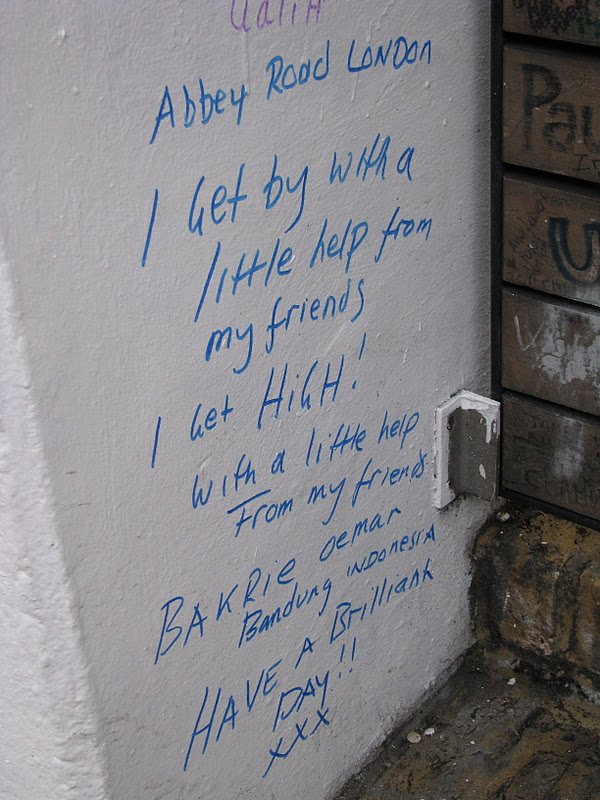 Abbey Road LONDON
I Get by with a
little help from
my friends
I Get HiGH!
with a little help
From my friends
BAKRie Oemar
Bandung INDONESIA
HAVE A BRilliank
DAY!!
xxx
Pau